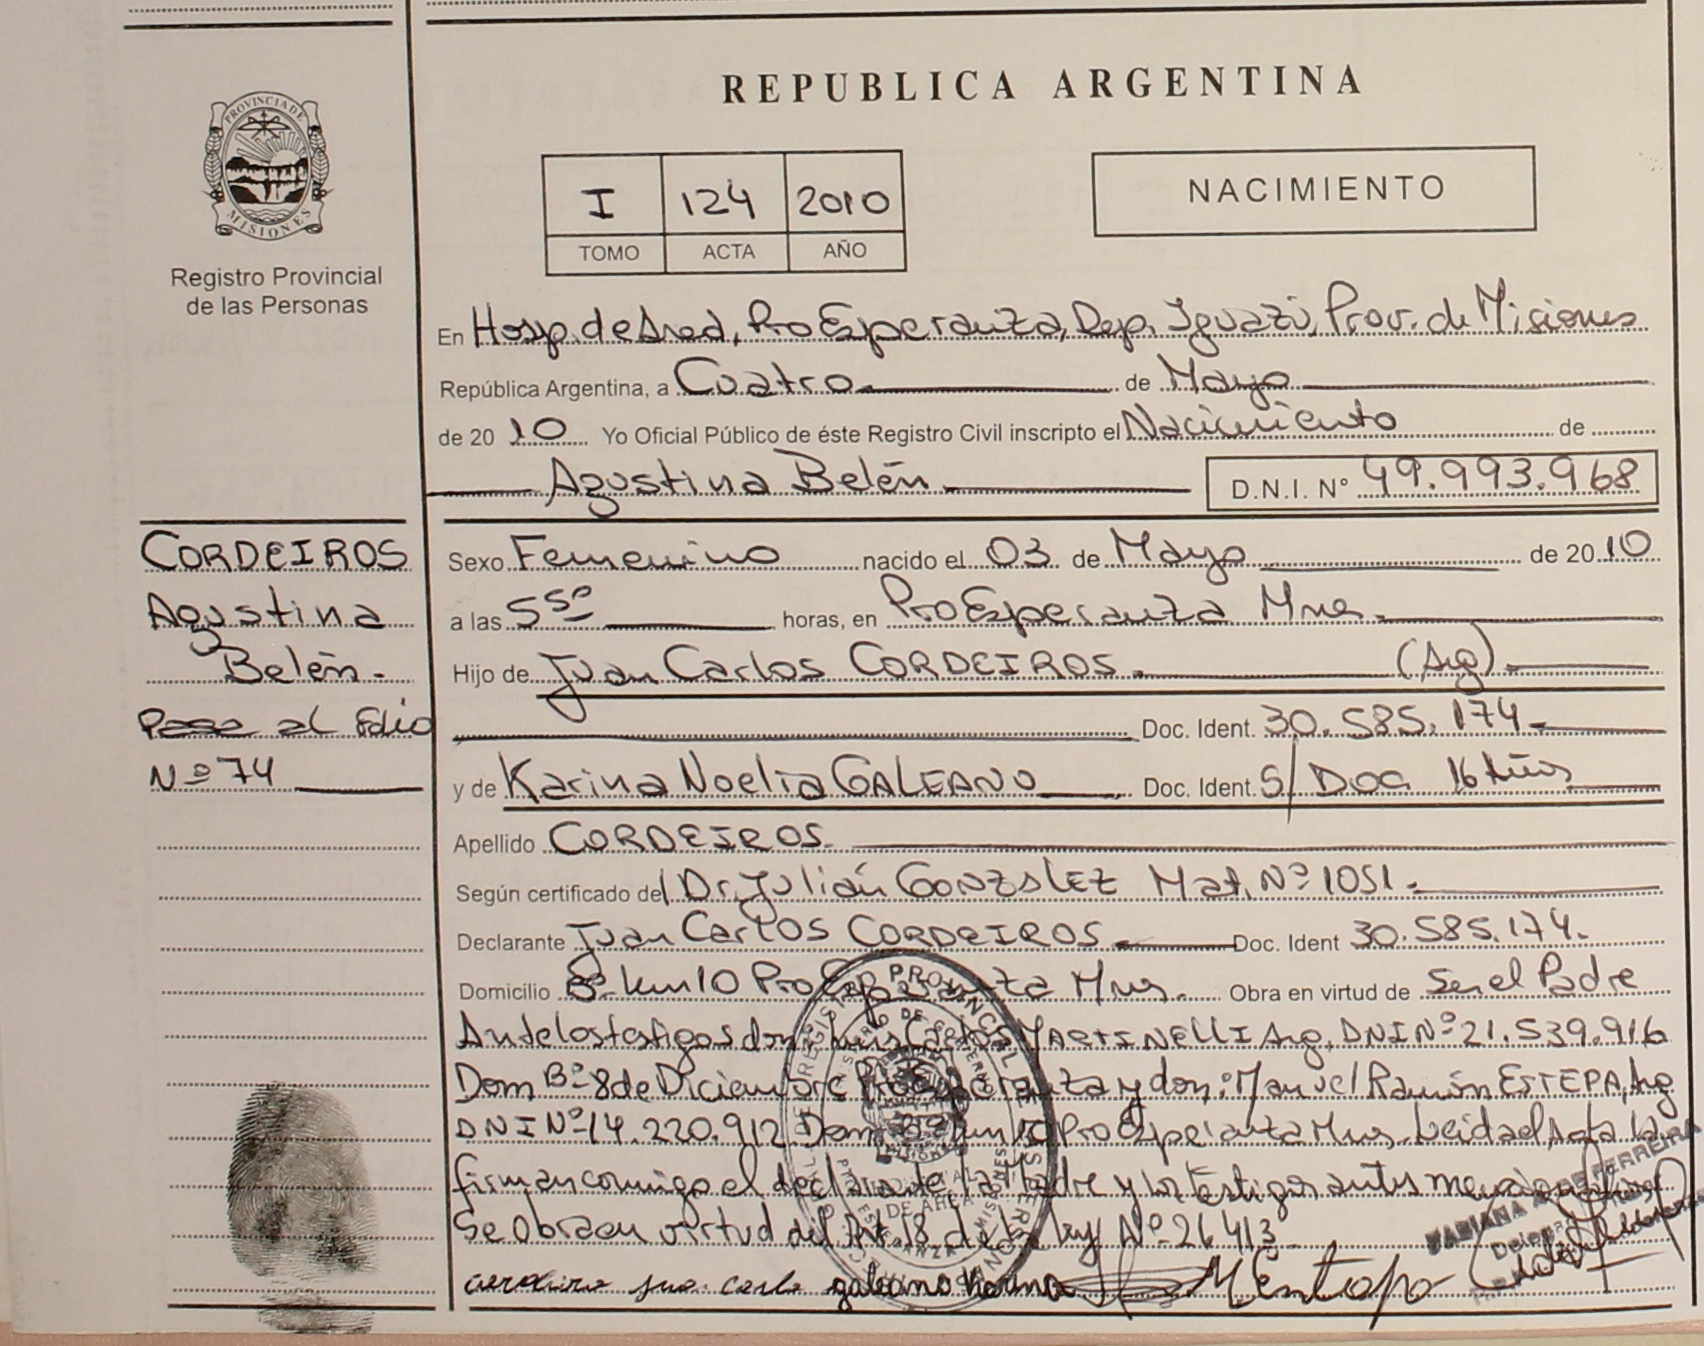 REPUBLICA ARGENTINA
PROVINCIA DE
MISIONES
Registro Provincial
de las Personas
I 124 2010
TOMO ACTA AÑO
NACIMIENTO
En Hosp. de Area, Pto Esperanza, Dep. Iguazú, Prov. de Misiones
República Argentina, a Cuatro de Mayo
de 2010 Yo Oficial Público de éste Registro Civil inscripto el Nacimiento de
Agustina Belén D.N.I. N° 49.993.968
CORDEIROS
Agustina
Belén.-
Pase al Folio
Nº 74
Sexo Femenino nacido el 03 de Mayo de 2010
a las 5⁵⁰ horas, en Pto Esperanza Mnes.
Hijo de Juan Carlos CORDEIROS. (Arg)
Doc. Ident. 30.585.174
y de Karina Noelia GALEANO Doc. Ident. S/ DOC 16 Años
Apellido CORDEIROS
Según certificado del Dr. Julián GONZALEZ Mat. Nº 1051.
Declarante Juan Carlos CORDEIROS Doc. Ident 30.585.174.
Domicilio Bº km 10 Pto Esperanza Mnes. Obra en virtud de Ser el Padre
Ante los testigos don: Luis Carlos MARTINELLI Arg. DNI Nº 21.539.916
Dom Bº 8 de Diciembre Pto Esperanza y don: Manuel Ramón ESTEPA, Arg
DNI Nº 14.220.912 Dom Bº km 10 Pto Esperanza Mnes. Leida el Acta la
firman conmigo el declarante, la Madre y los testigos antes
Se Obra en virtud del Art. 18 de la ley Nº 26413
galeano karina
FABIANA FERREIRA